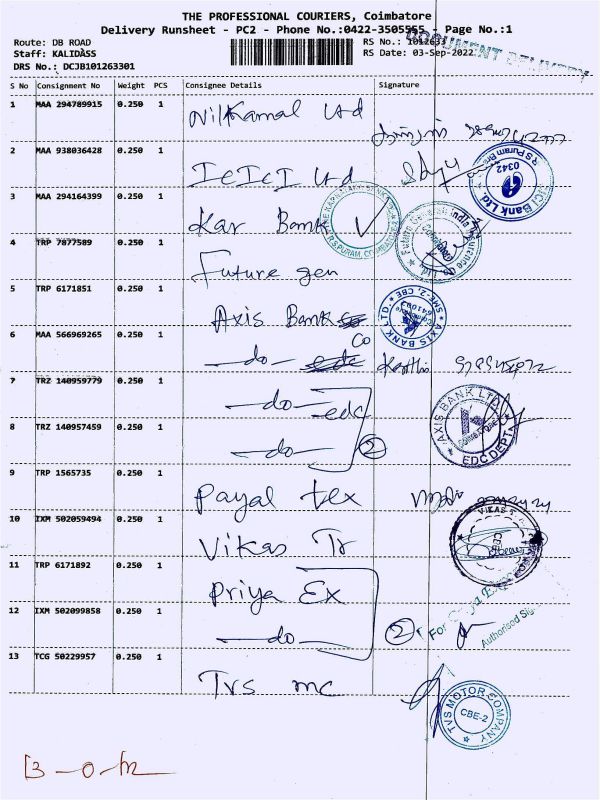 THE PROFESSIONAL COURIERS, Coimbatore
Delivery Runsheet - PC2 - Phone No.:0422-3505555 - Page No.:1
Route: DB ROAD
RS No.: 1012633
DOCUMENT DELIVERY
Staff: KALIDASS
RS Date: 03-Sep-2022
DRS No.: DCJB101263301
S No Consignment No Weight PCS Consignee Details Signature
1 MAA 294789915 0.250 1 Nilkamal Ltd
2 MAA 938036428 0.250 1 IcIcI Ltd
R S Puram 0342 ICICI Bank Ltd.
3 MAA 294164399 0.250 1 Kar Bank
R S PURAM, COIMBATORE
Future Generali India Insurance Co. Ltd. Coimbatore
4 TRP 7877589 0.250 1 Future gen
5 TRP 6171851 0.250 1 Axis Bank
AXIS BANK LTD. SME-2, CBE 641002
Co
6 MAA 566969265 0.250 1 —do—
7 TRZ 140959779 0.250 1 —do— edc
AXIS BANK LTD EDC DEPT
8 TRZ 140957459 0.250 1 —do— 2
9 TRP 1565735 0.250 1 Payal tex
10 IXM 502059494 0.250 1 Vikas Tr
VIKAS
11 TRP 6171892 0.250 1 Priya Ex
12 IXM 502099858 0.250 1 —do— 2
For
Authorised
13 TCG 50229957 0.250 1 Tvs mc
TVS MOTOR COMPANY CBE-2
13 - 0 -